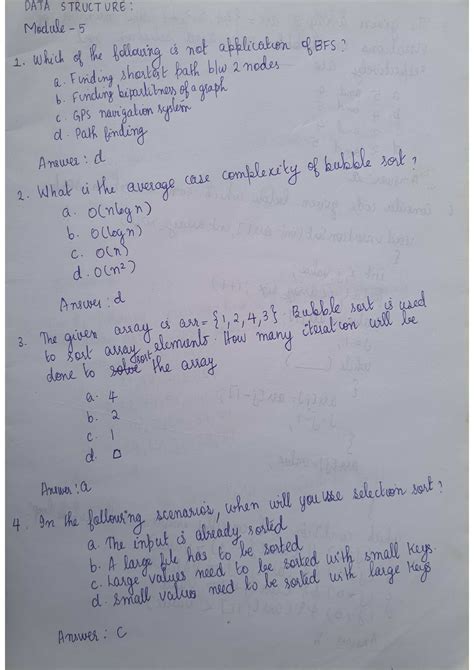 DATA STRUCTURE:
Module - 5
1. Which of the following is not application of BFS?
a. Finding shortest path b/w 2 nodes
b. Finding bipartitness of a graph
c. GPS navigation system
d. Path finding
Answer: d
2. What is the average case complexity of bubble sort?
a. O(nlogn)
b. O(logn)
c. O(n)
d. O(n²)
Answer: d
3. The given array is arr = {1,2,4,3}. Bubble sort is used
to sort array elements. How many iteration will be
done to sort the array
a. 4
b. 2
c. 1
d. 0
Answer: a
4. In the following scenarios, when will you use selection sort?
a. The input is already sorted
b. A large file has to be sorted
c. Large values need to be sorted with small keys.
d. small values need to be sorted with large keys
Answer: c